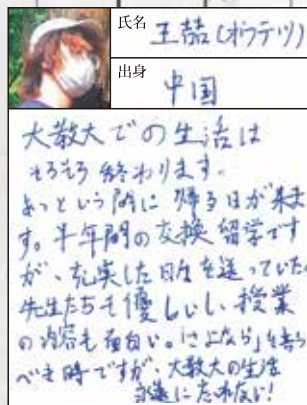 氏名 王喆(オウテツ)
出身 中国
大教大での生活は
そろそろ終わります。
あっという間に帰る日が来ま
す。半年間の交換留学です
が、充実した日々を送っていた。
先生たちも優しいし、授業
の内容も面白い。「さよなら」を言う
べき時ですが、大教大の生活
永遠に忘れない!